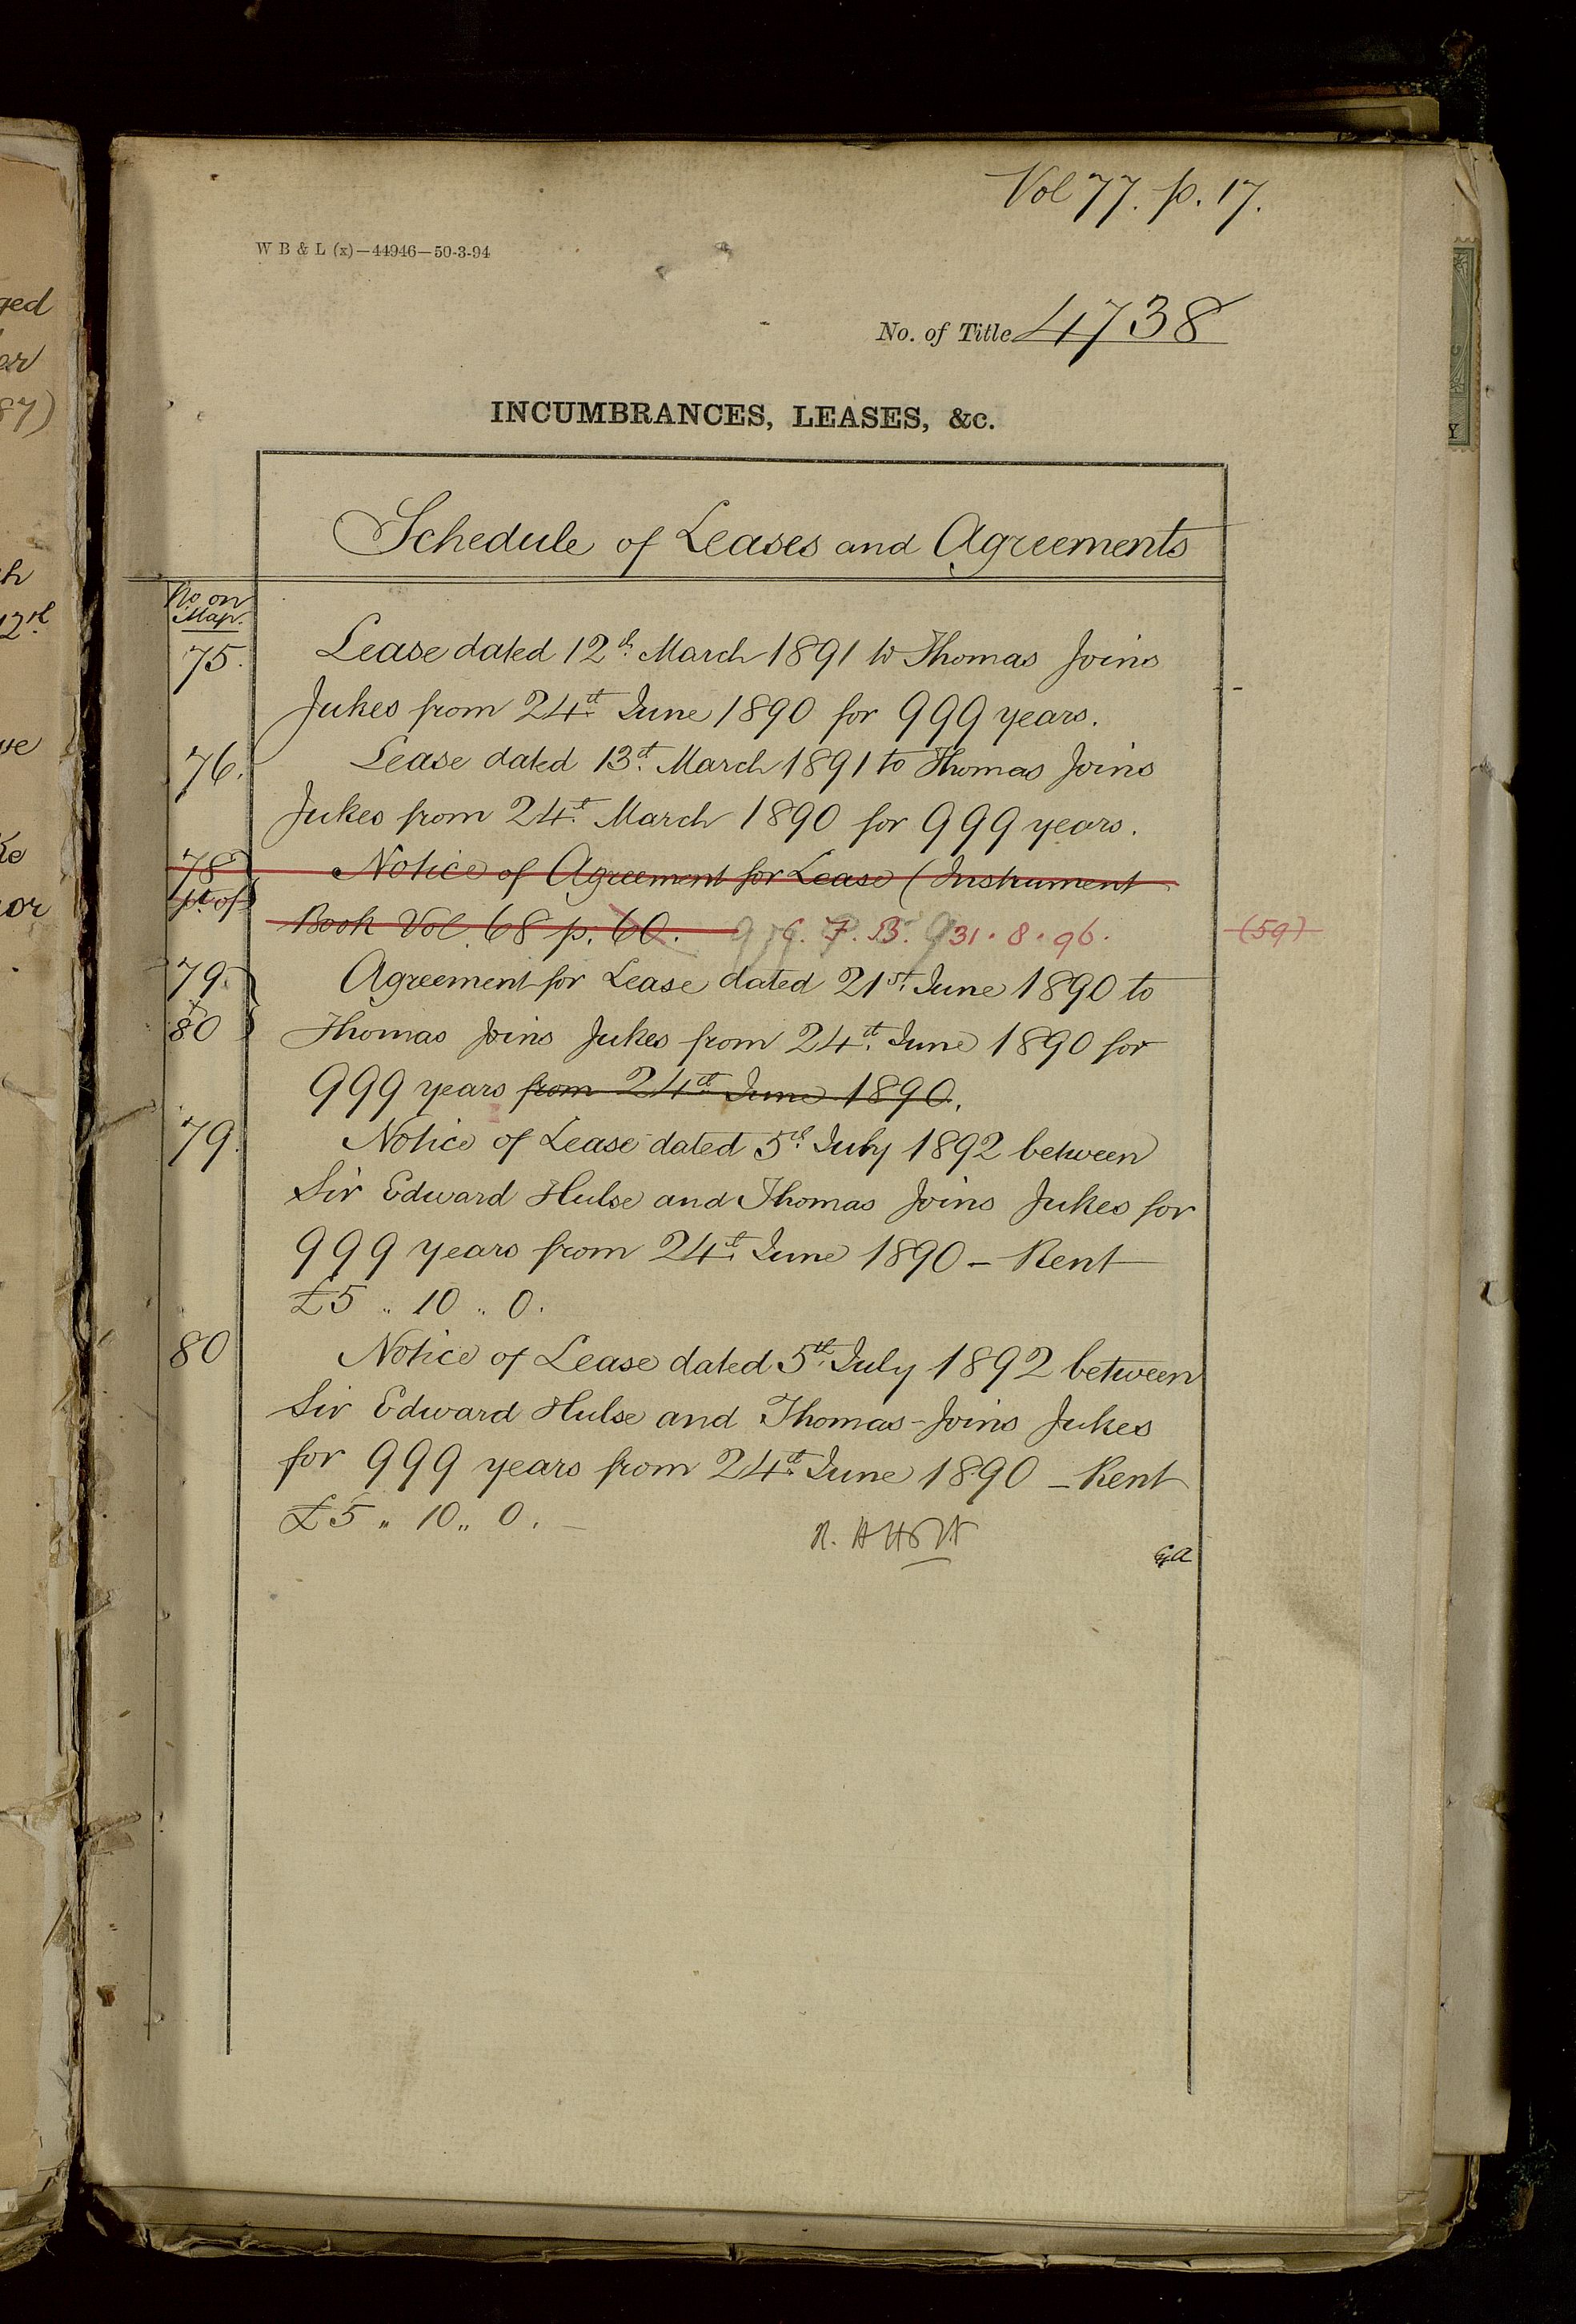 Vol 77. p. 17.
W B & L (x)—44946—50-3-94
No. of Title 4738
INCUMBRANCES, LEASES, &c.
Schedule of Leases and Agreements
No on
Map.
75. Lease dated 12th March 1891 to Thomas Joins
Jukes from 24th June 1890 for 999 years.
76. Lease dated 13th March 1891 to Thomas Joins
Jukes from 24th March 1890 for 999 years.
78 Notice of Agreement for Lease (Instrument
pt of Book Vol. 68 p. 60. 31.8.96. (59)
79. Agreement for Lease dated 21st June 1890 to
80 Thomas Joins Jukes from 24th June 1890 for
999 years from 24th June 1890.
79. Notice of Lease dated 5th July 1892 between
Sir Edward Hulse and Thomas Joins Jukes for
999 years from 24th June 1890 – Rent
£5 .. 10 .. 0.
80 Notice of Lease dated 5th July 1892 between
Sir Edward Hulse and Thomas Joins Jukes
for 999 years from 24th June 1890 – Rent
£5 .. 10 .. 0.